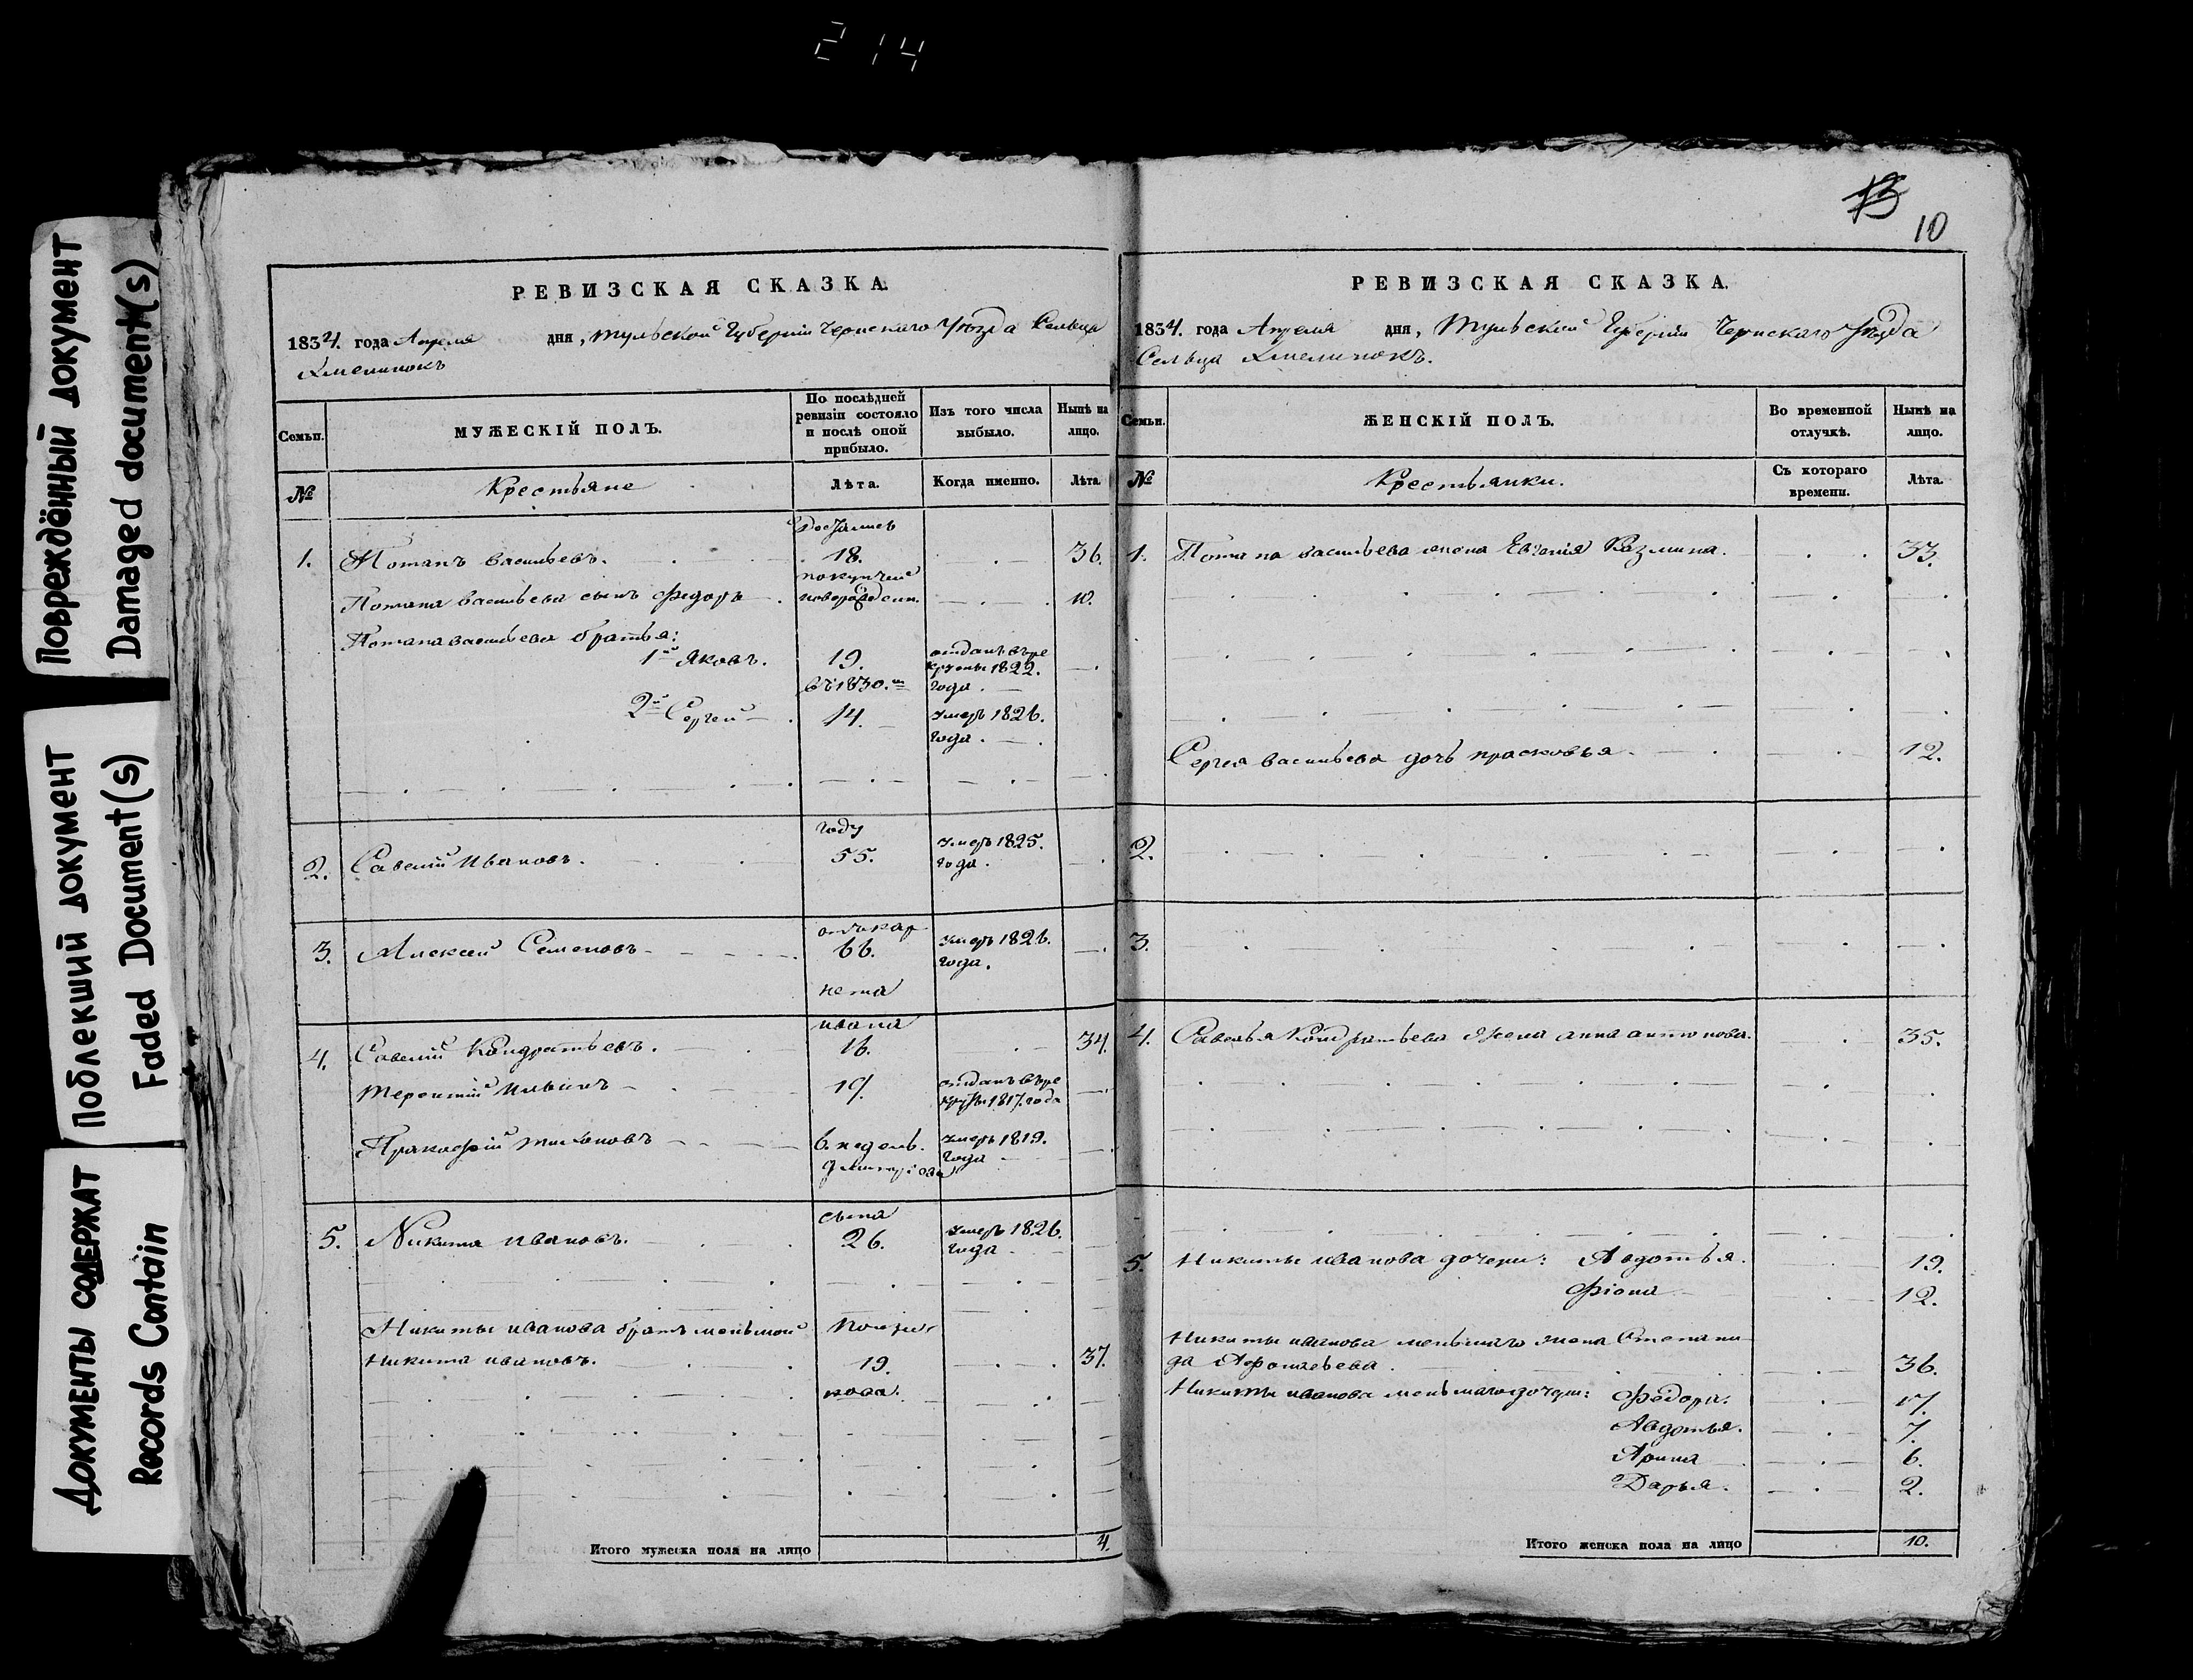 214
Повреждённый документ
Damaged document(s)
Поблекший документ
Faded Document(s)
Документы содержат
Records Contain
13
10
РЕВИЗСКАЯ СКАЗКА.
1834. года Апреля дня, Тульской Губернiи Чернскаго Уѣзда Сельца
Хмелинокъ
Семьи.
МУЖЕСКIЙ ПОЛЪ.
По послѣдней ревизiи состояло и послѣ оной прибыло.
Изъ того числа выбыло.
Нынѣ на лицо.
№
Крестьяне
Лѣта.
Когда именно.
Лѣта.
Достались
1. Потапъ Васильевъ. 18. 36.
покупчей
Потапа Васильева сынъ Федоръ новорожден. 10.
Потапа Васильева братья:
1й Яковъ. 19. отданъ въ ре
круты 1822.
въ 1830.м года.
2й Сергей 14. умеръ 1826.
года.
году
2. Савелiй Ивановъ. 55. умеръ 1825.
года.
отъ кар
3. Алексей Семеновъ 66. умеръ 1826.
года.
нета
ивана
4. Савелiй Кондратьевъ. 16. 34.
Терентiй Ильинъ 19. отданъ въ ре
круты 1817. года
Пракофiй Тихоновъ 6. недель. умеръ 1819.
года
дмитрiева
сына
5. Никита Ивановъ. 26. умеръ 1826.
года
Никиты Иванова братъ меньшой
Никита Ивановъ. 19. 37.
кова.
Итого мужеска пола на лицо 4.
РЕВИЗСКАЯ СКАЗКА.
1834. года Апреля дня, Тульской Губернiи Чернскаго Уѣзда
Сельца Хмелинокъ.
Семьи.
ЖЕНСКIЙ ПОЛЪ.
Во временной отлучкѣ.
Нынѣ на лицо.
№
Крестьянки.
Съ котораго времени.
Лѣта.
1. Потапа Васильева жена Евгенiя Казмина. 33.
Сергея Васильева дочь Прасковья. 12.
2.
3.
4. Савелья Кондратьева жена Анна Антонова. 35.
5. Никиты Иванова дочери: Авдотья. 19.
Фiона 12.
Никиты Иванова меньшаго жена Степани
да Афонасьева. 36.
Никиты Иванова меньшаго дочери: Федора. 17.
Авдотья. 7.
Арина 6.
Дарья. 2.
Итого женска пола на лицо 10.